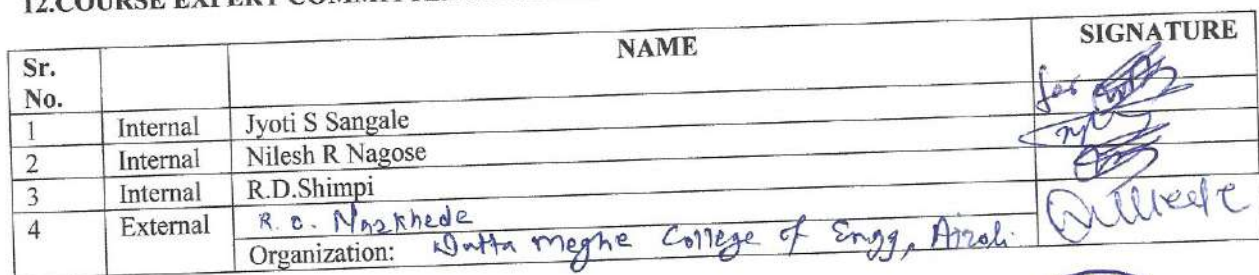 12.COURSE EXPERT COMMITTEE
Sr. No. NAME SIGNATURE
1 Internal Jyoti S Sangale for
2 Internal Nilesh R Nagose
3 Internal R.D.Shimpi
4 External R. C. Narkhede
Organization: Datta Meghe College of Engg, Airoli.